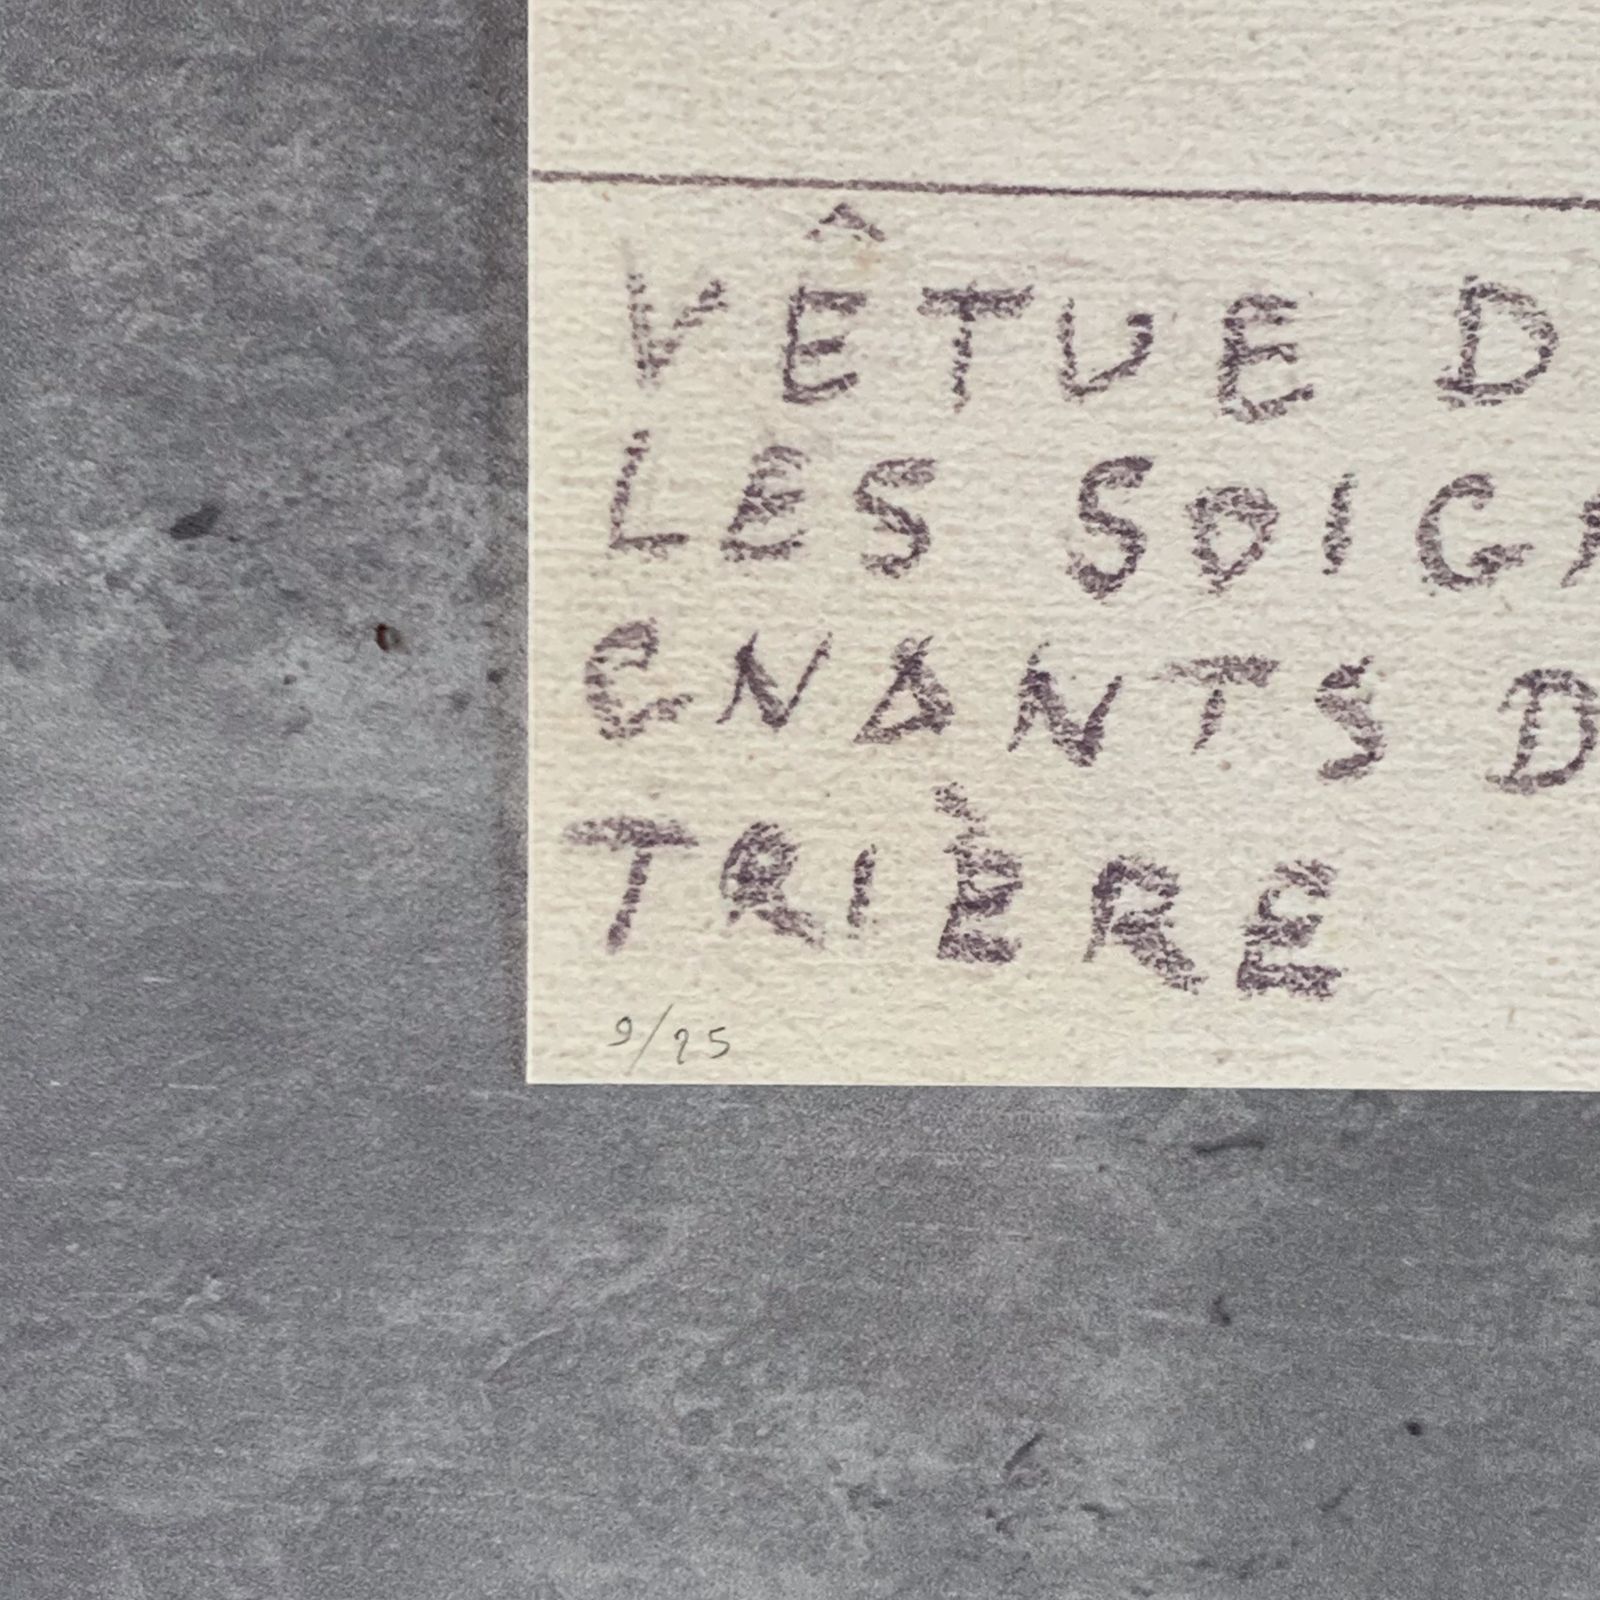 VÊTUE D
LES SOIG
GNANTS D
TRIÈRE
9/25